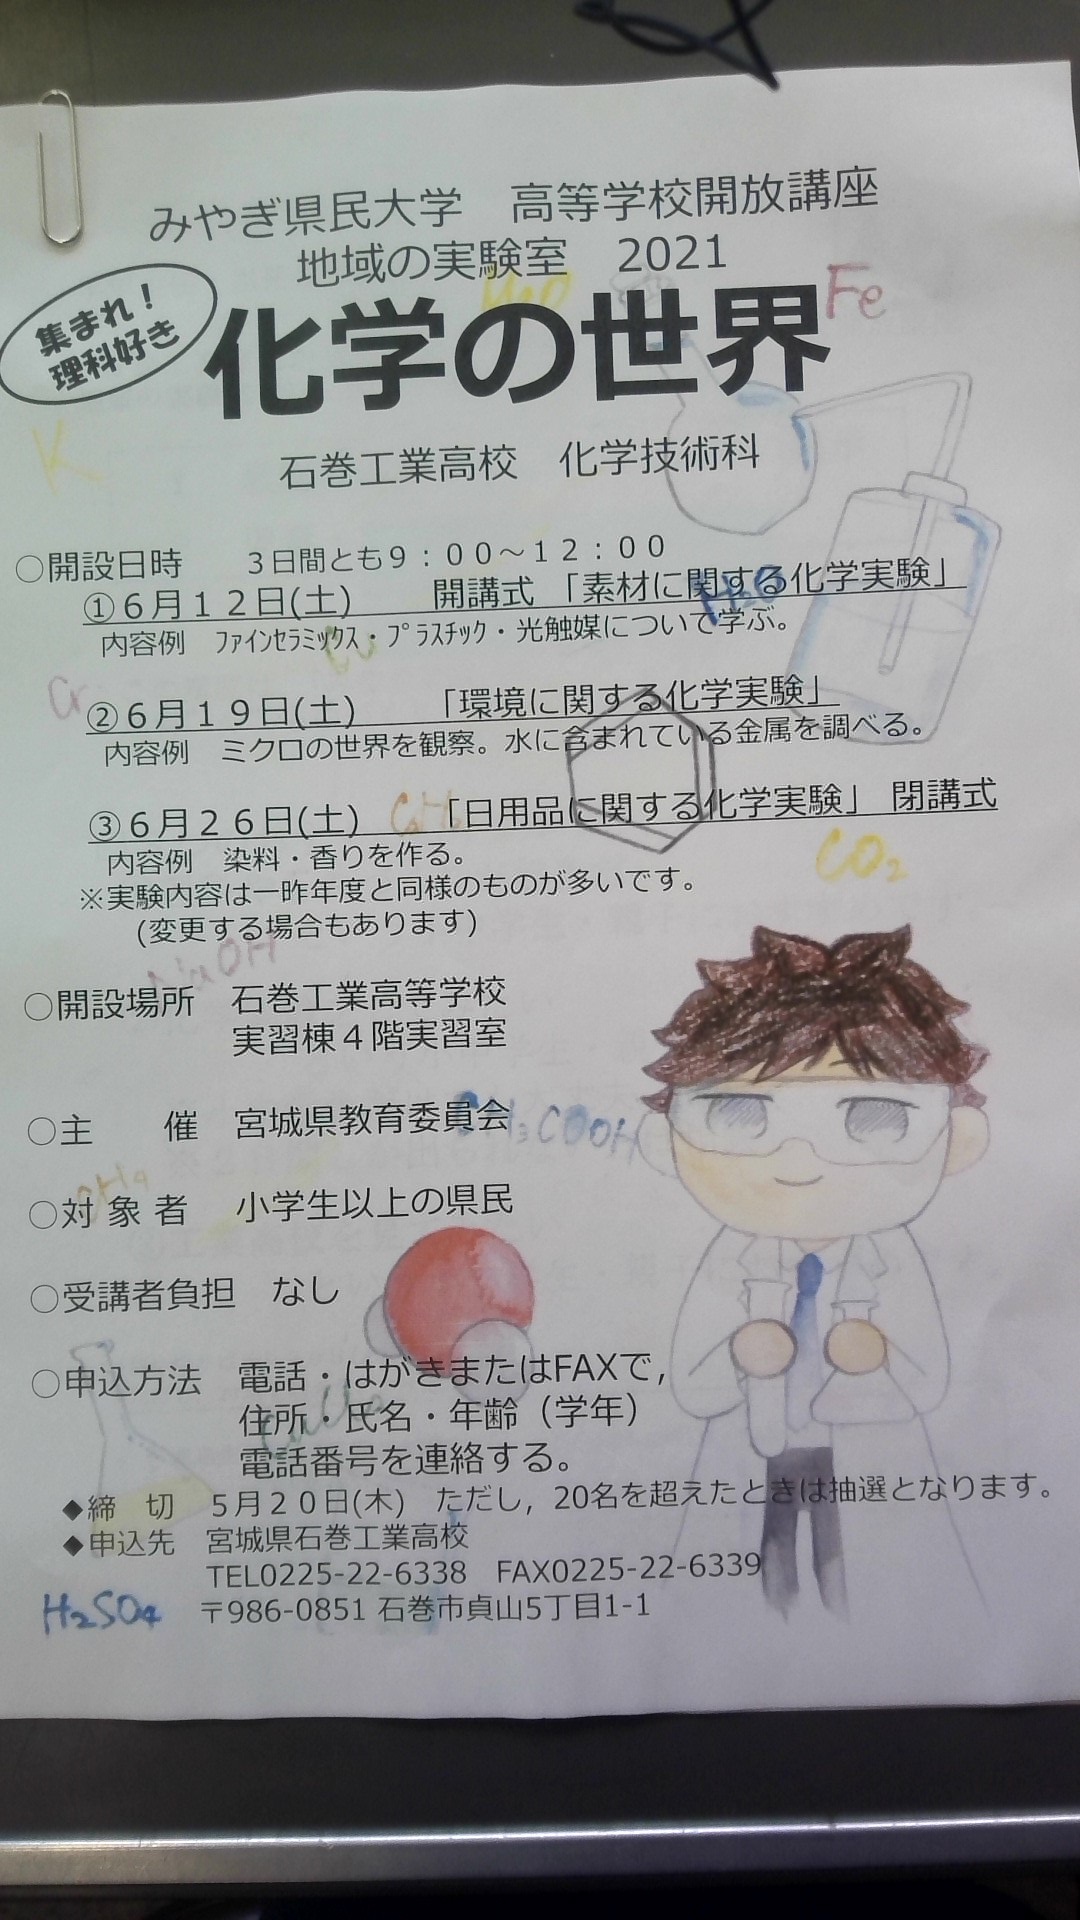 みやぎ県民大学　高等学校開放講座
地域の実験室　2021
集まれ！
理科好き
化学の世界
Fe
K
石巻工業高校　化学技術科
○開設日時　３日間とも９：００～１２：００
①６月１２日(土)　開講式「素材に関する化学実験」
H2O
内容例　ﾌｧｲﾝｾﾗﾐｯｸｽ・ﾌﾟﾗｽﾁｯｸ・光触媒について学ぶ。
Cr
②６月１９日(土)　「環境に関する化学実験」
内容例　ミクロの世界を観察。水に含まれている金属を調べる。
③６月２６日(土)　「日用品に関する化学実験」 閉講式
内容例　染料・香りを作る。
CO2
※実験内容は一昨年度と同様のものが多いです。
(変更する場合もあります)
NaOH
○開設場所　石巻工業高等学校
実習棟４階実習室
○主　催　宮城県教育委員会
CH3COOH
CH4
○対 象 者　小学生以上の県民
○受講者負担　なし
○申込方法　電話・はがきまたはFAXで，
住所・氏名・年齢（学年）
電話番号を連絡する。
◆締　切　５月２０日(木)　ただし，20名を超えたときは抽選となります。
◆申込先　宮城県石巻工業高校
TEL0225-22-6338　FAX0225-22-6339
H2SO4
〒986-0851 石巻市貞山5丁目1-1